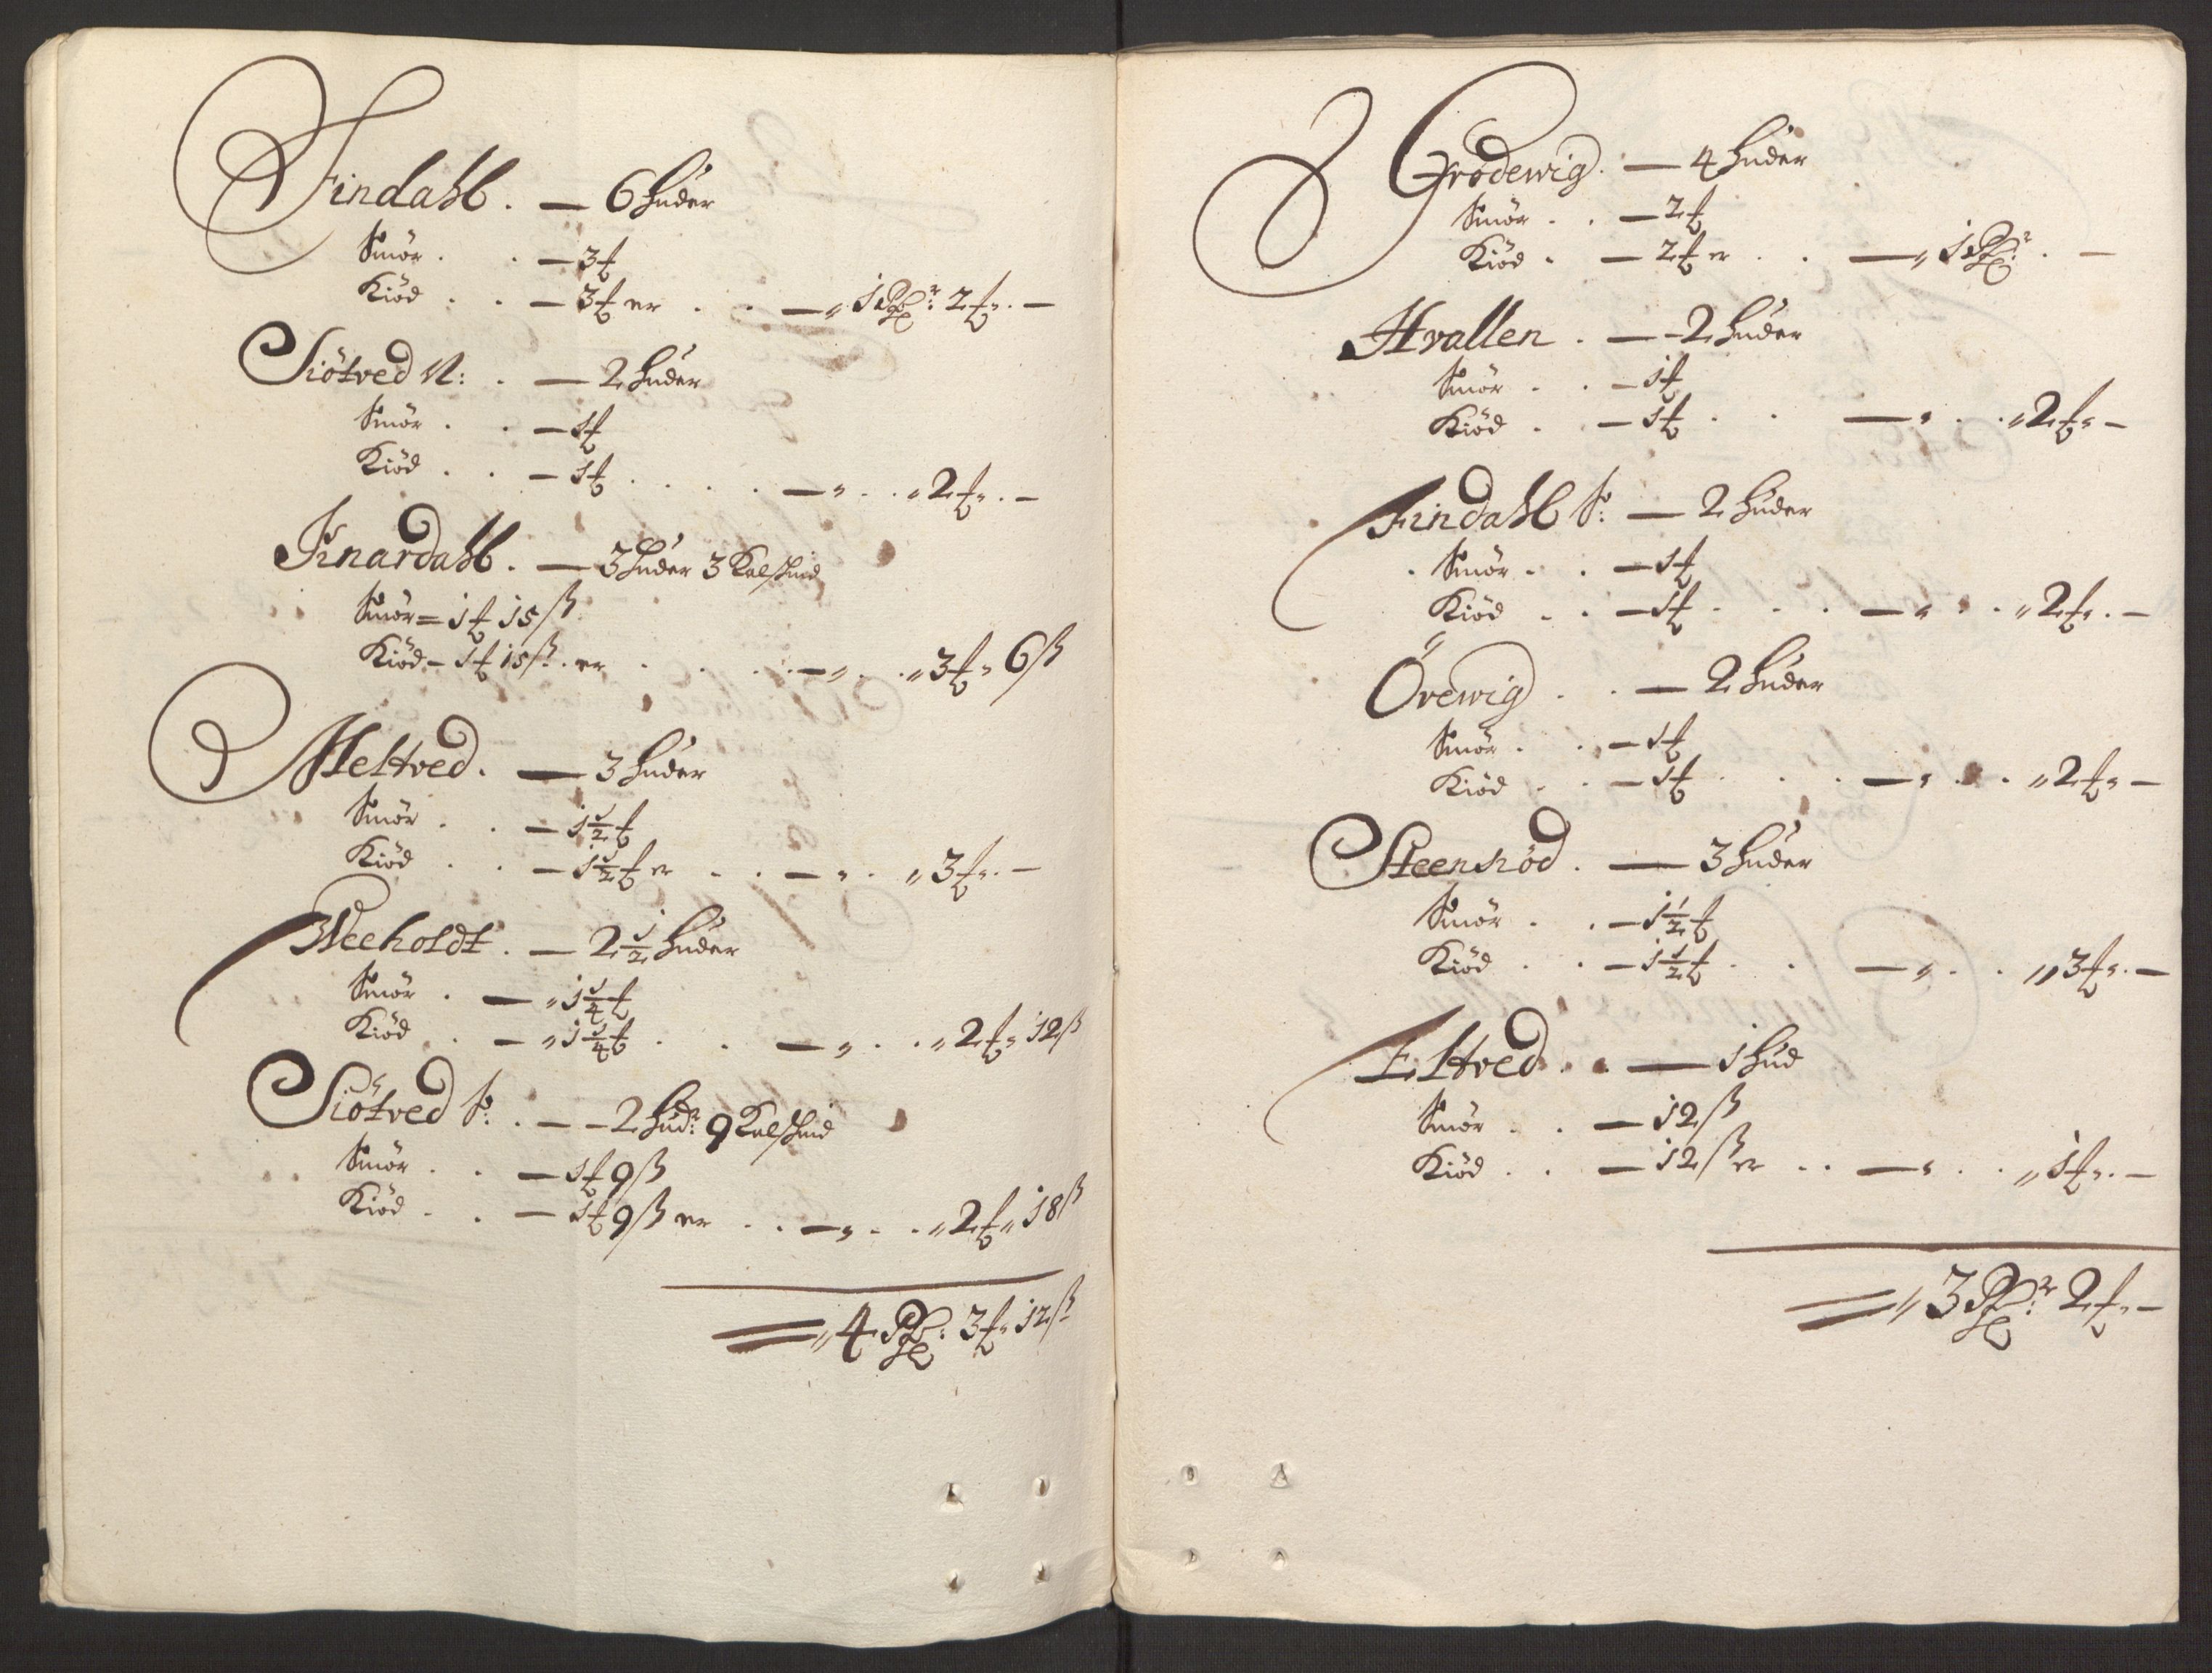 Findahl . — 6 huder
Smör . . — 3 ℔
Kiöd . . — 3 ℔ er . . — „ 1 Rdr: 2 ℔ „ . —
Siötved N: . — 2 huder
Smör . . — 1 ℔
Kiöd . . — 1 ℔ . . . . — „ . . „ 2 ℔ „ . —
Knardahl . — 3 huder 3 Kalfskind
Smör = 1 ℔ 15 ß
Kiöd — 1 ℔ 15 ß . er . . . . — „ . . „ 3 ℔ „ 6 ß
Meltved . — 3 huder
Smör . . — 1 1/2 ℔
Kiöd . . — 1 1/2 ℔ er . . — „ . „ 3 ℔ „ . —
Weeholdt . — 2 1/2 huder
Smör . — „ 1 1/4 ℔
Kiöd . — „ 1 1/4 ℔ . . — „ . . „ 2 ℔ „ 12 ß
Siötved S: . — 2 hudr: 9 Kalfskind
Smör . . — 1 ℔ 9 ß
Kiöd . . — 1 ℔ 9 ß er . . — „ . . „ 2 ℔ „ 18 ß
= „ 4 Rd: 3 ℔ „ 12 ß
Grödewig . — 4 huder
Smör . . — 2 ℔
Kiöd . — 2 ℔ er . . — „ 1 Rdr: . —
Hvallen . — 2 huder
Smör . . — 1 ℔
Kiöd . — 1 ℔ . . — „ . . „ 2 ℔ „ —
Findahl S: — 2 huder
Smör . . — 1 ℔
Kiöd . . — 1 ℔ . . . — „ . . „ 2 ℔ „ . —
Örewig . . — 2 huder
Smör . . — 1 ℔
Kiöd . . — 1 ℔ . . . — „ . . „ 2 ℔ „ —
Steensröd . — 3 huder
Smör . . — 1 1/2 ℔
Kiöd . . — 1 1/2 ℔ . . — „ . . „ 3 ℔ „ . —
Eltved . . — 1 hud
Smör . . — 12 ß
Kiöd . . — 12 ß er . . — „ . . „ 1 ℔ „ . —
= „ 3 Rdr: 2 ℔ „ —